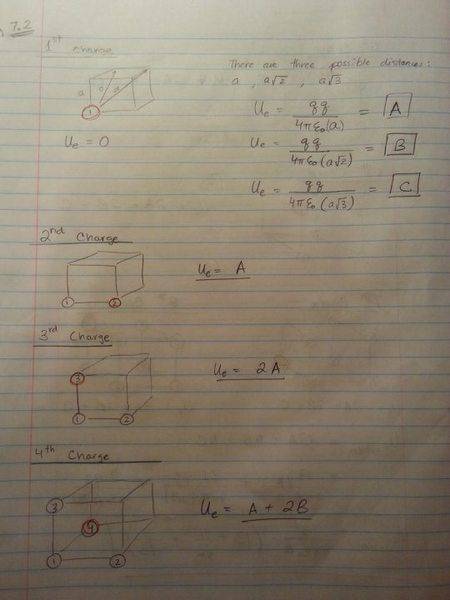 7.2
1st Charge
There are three possible distances:
a , a√2 , a√3
a
1
Ue = 0
Ue = qq / 4πε₀(a) = A
Ue = qq / 4πε₀(a√2) = B
Ue = qq / 4πε₀(a√3) = C
2nd Charge
1 2
Ue = A
3rd Charge
3
1 2
Ue = 2A
4th Charge
3
4
1 2
Ue = A + 2B